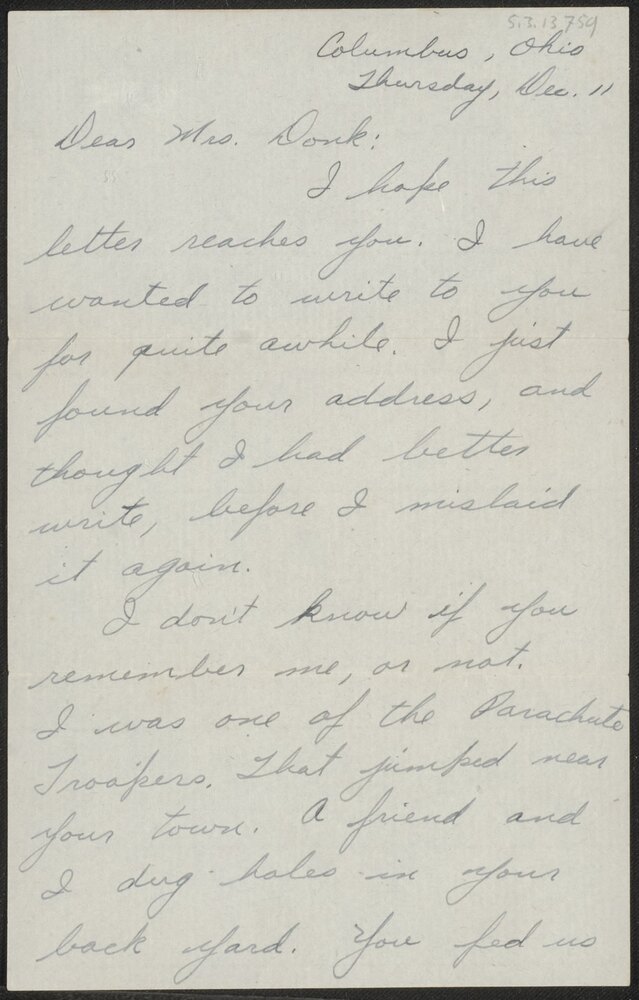 5.3.13.759
Columbus, Ohio
Thursday, Dec. 11
Dear Mrs. Donk:
I hope this
letter reaches you. I have
wanted to write to you
for quite awhile. I just
found your address, and
thought I had better
write, before I mislaid
it again.
I don't know if you
remember me, or not.
I was one of the Parachute
Troopers. That jumped near
your town. A friend and
I dug holes in your
back yard. You fed us